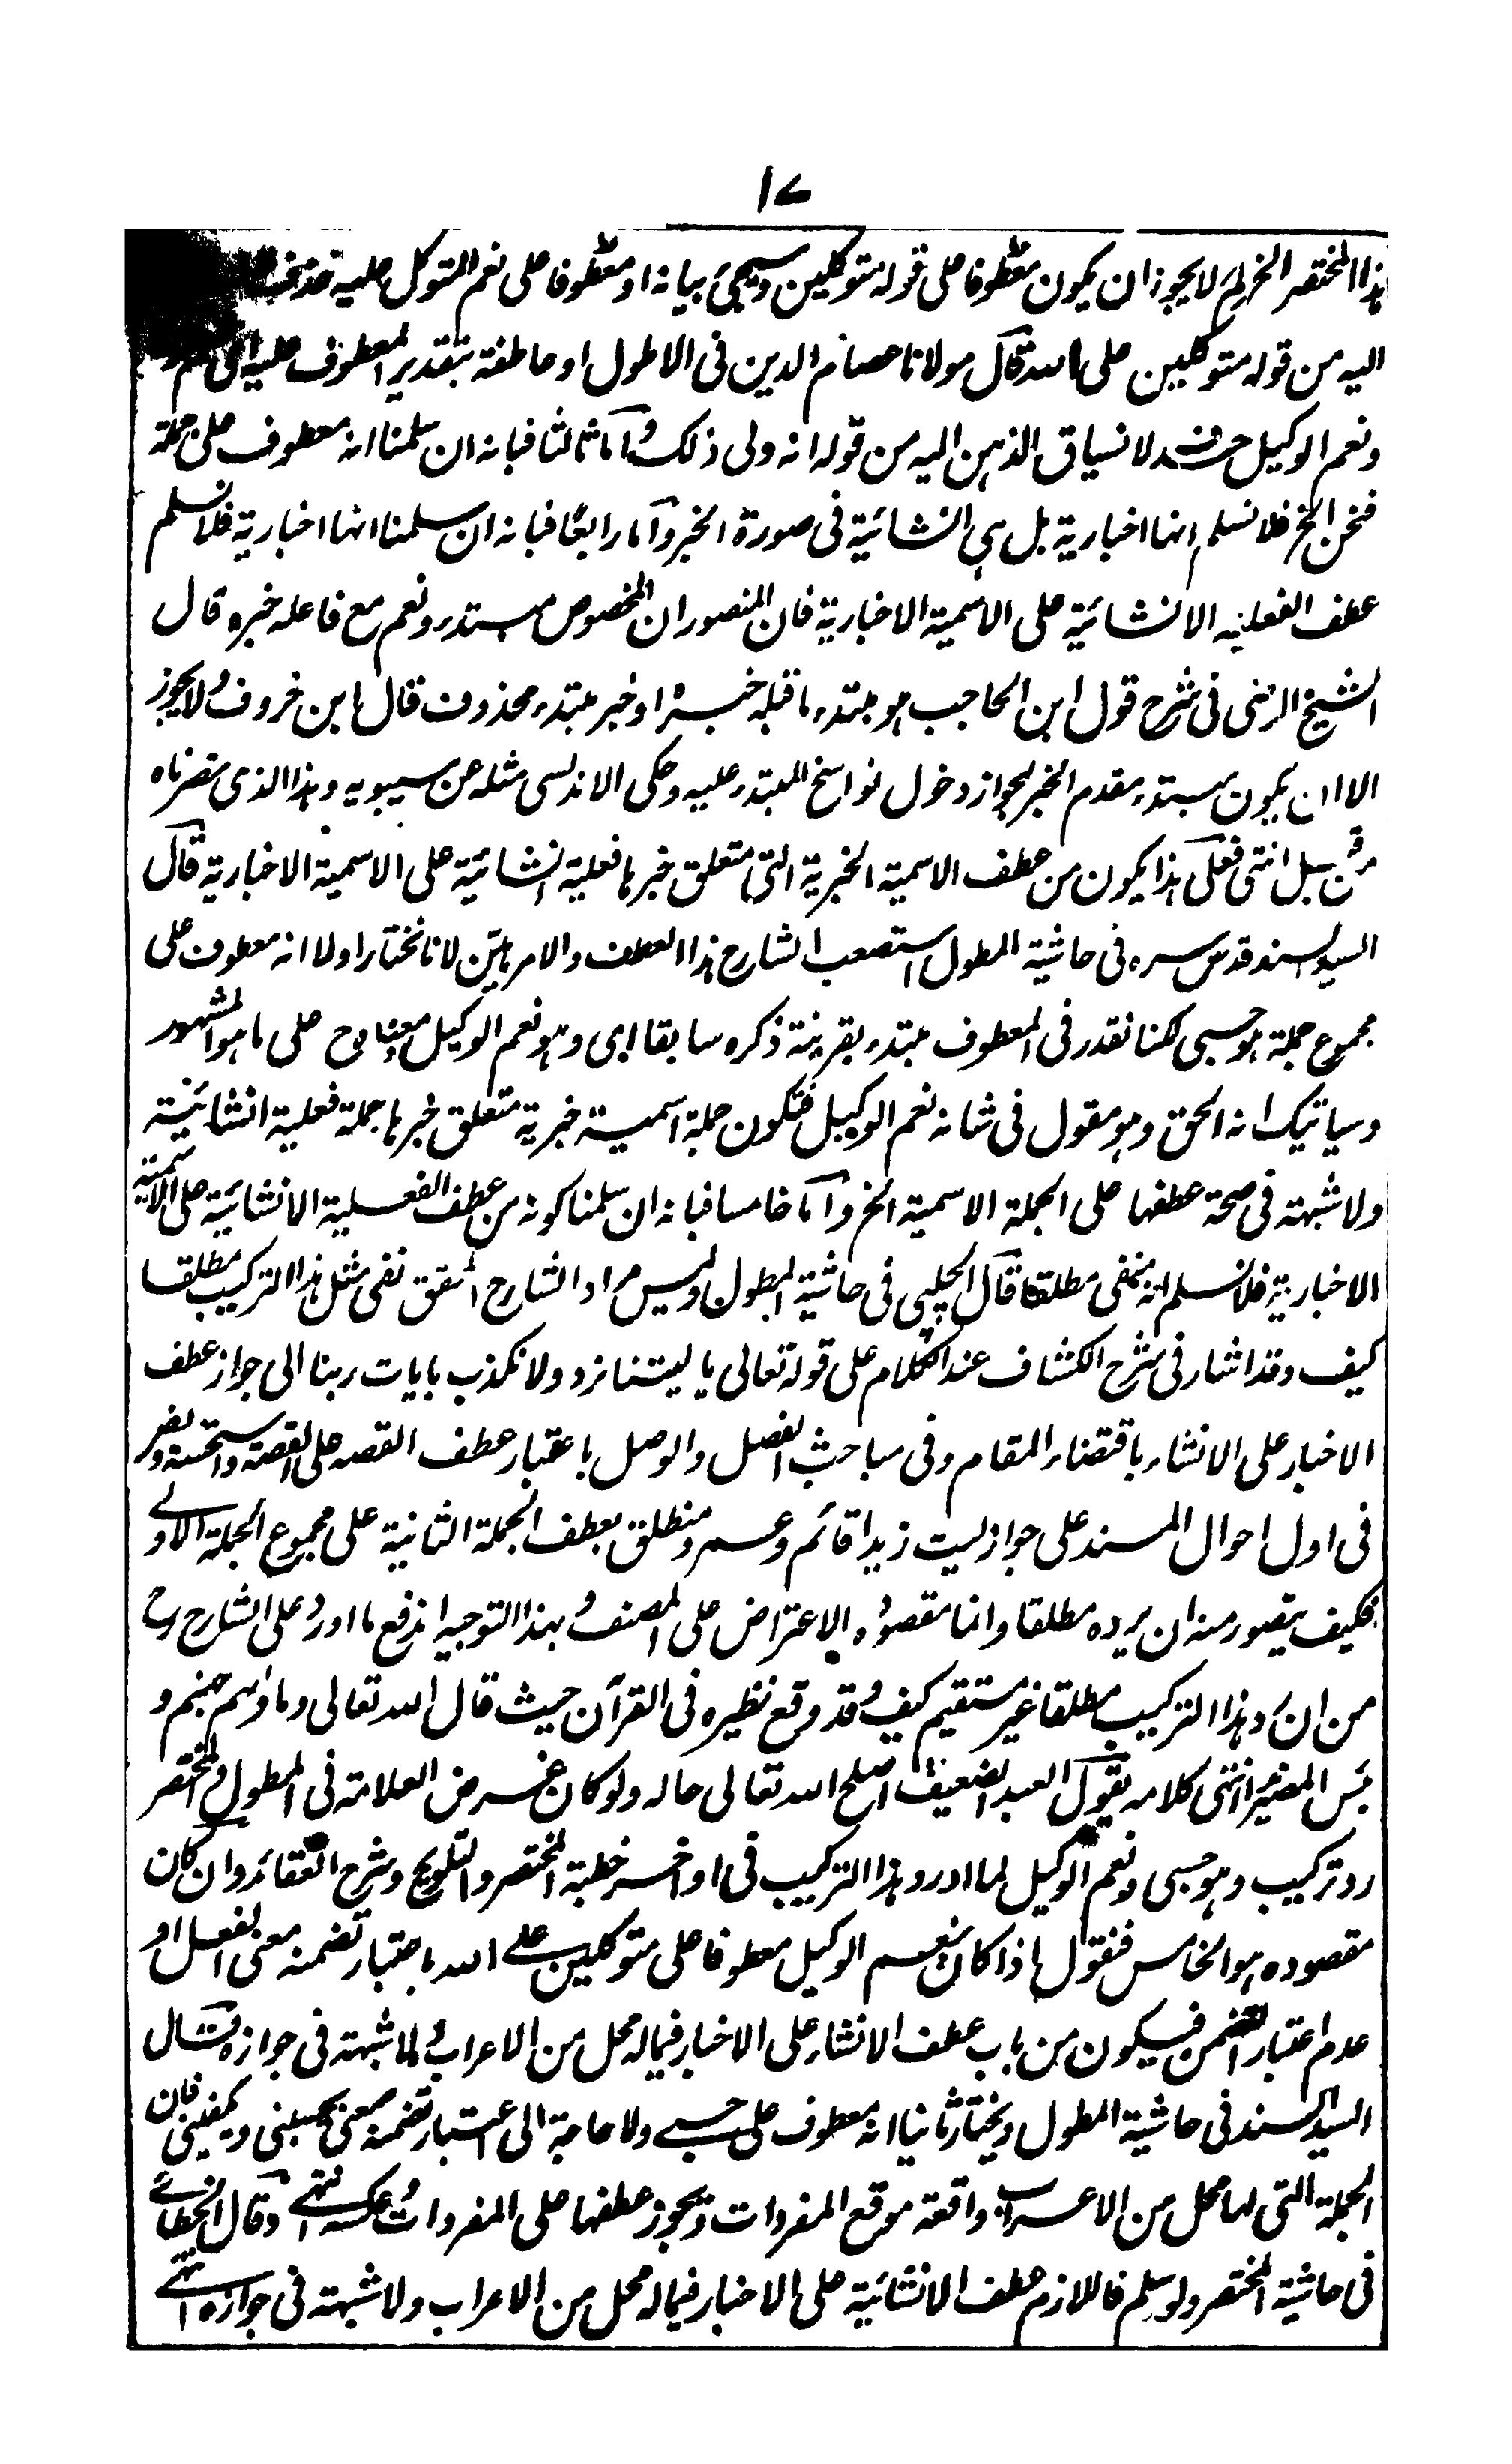 ١٧
هذا المختصر الخ لم لا يجوز ان يكون معطوفا على قوله متوكلين وسيجئ بيانه او معطوفا على نعم المتوكل عليه
اليه من قوله متوكلين على الله قال مولانا عصام الدين فى الاطول او عاطفة بتقدير المعطوف عليه اى نعم
ونعم الوكيل حذف لانسياق الذهن اليه من قوله انه ولى ذلك واما ثالثا فبانه ان سلمنا انه معطوف على جملة
فنحن الخ فلا نسلم انها اخبارية بل هى انشائية فى صورة الخبر واما رابعا فبانه ان سلمنا انها اخبارية فلا نسلم
عطف الفعلية الانشائية على الاسمية الاخبارية فان المنصور ان المخصوص مبتدء ونعم مع فاعله خبره قال
الشيخ الرضى فى شرح قول ابن الحاجب هو مبتدء ما قبله خبره او خبر مبتدء محذوف قال ابن خروف ولا يجوز
الا ان يكون مبتدء مقدم الخبر لجواز دخول نواسخ المبتدء عليه وحكى الاندلسى مثله عن سيبويه وهذا الذى نصرناه
من قبل انتهى فعلى هذا يكون من عطف الاسمية الخبرية التى متعلق خبرها فعلية انشائية على الاسمية الاخبارية قال
السيد السند قدس سره فى حاشية المطول استصعب الشارح هذا العطف والامر هين لانا نختار اولا انه معطوف على
مجموع جملة هو حسبى لكنا نقدر فى المعطوف مبتدء بقرينة ذكره سابقا اى وهو نعم الوكيل معناه ح على ما هو المشهور
وسياتيك انه الحق وهو مقول فى شانه نعم الوكيل فتكون جملة اسمية خبرية متعلق خبرها جملة فعلية انشائية
ولا شبهة فى صحة عطفها على الجملة الاسمية الخ واما خامسا فبانه ان سلمنا كونه من عطف الفعلية الانشائية على الاسمية
الاخبارية فلا نسلم انه منفى مطلقا قال الچلپى فى حاشية المطول وليس مراد الشارح المحقق نفى مثل هذا التركيب مطلقا
كيف وقد اشار فى شرح الكشاف عند الكلام على قوله تعالى يا ليتنا نرد ولا نكذب بايات ربنا الى جواز عطف
الاخبار على الانشاء باقتضاء المقام وفى مباحث الفصل والوصل باعتبار عطف القصه على القصة واستحسنه ونص
فى اول احوال المسند على جواز ليت زيدا قائم وعمرو منطلق بعطف الجملة الثانية على مجموع الجملة الاولے
فكيف يتصور منه ان يرده مطلقا وانما مقصوده الاعتراض على المصنف وبهذا التوجيه اندفع ما اورد على الشارح رح
من ان رد هذا التركيب مطلقا غير مستقيم كيف وقد وقع نظيره فى القرآن حيث قال الله تعالى وماوٰهم جهنم و
بئس المصير انتهى كلامه يقول العبد الضعيف اصلح الله تعالى حاله ولو كان غرض العلامة فى المطول والمختصر
رد تركيب وهو حسبى ونعم الوكيل لما اورد هذا التركيب فى اواخر خطبة المختصر والتلويح وشرح العقائد وان كان
مقصوده هو الخامس فنقول اذا كان نعم الوكيل معطوفا على متوكلين علے الله باعتبار تضمنه معنى الفعل او
عدم اعتبار التضمن فيكون من باب عطف الانشاء على الاخبار فيما له محل من الاعراب ولا شبهة فى جوازه قال
السيد السند فى حاشية المطول ويختار ثانيا انه معطوف على حسبے ولا حاجة الى اعتبار تضمنه معنى يحسبنى ويكفينى فان
الجملة التى لها محل من الاعراب واقعة موقع المفردات ويجوز عطفها على المفردات وعكسه انتهے وقال الخطائے
فى حاشية المختصر ولو سلم فاللازم عطف الانشائية على الاخبار فيما له محل من الاعراب ولا شبهة فى جوازه انتهے